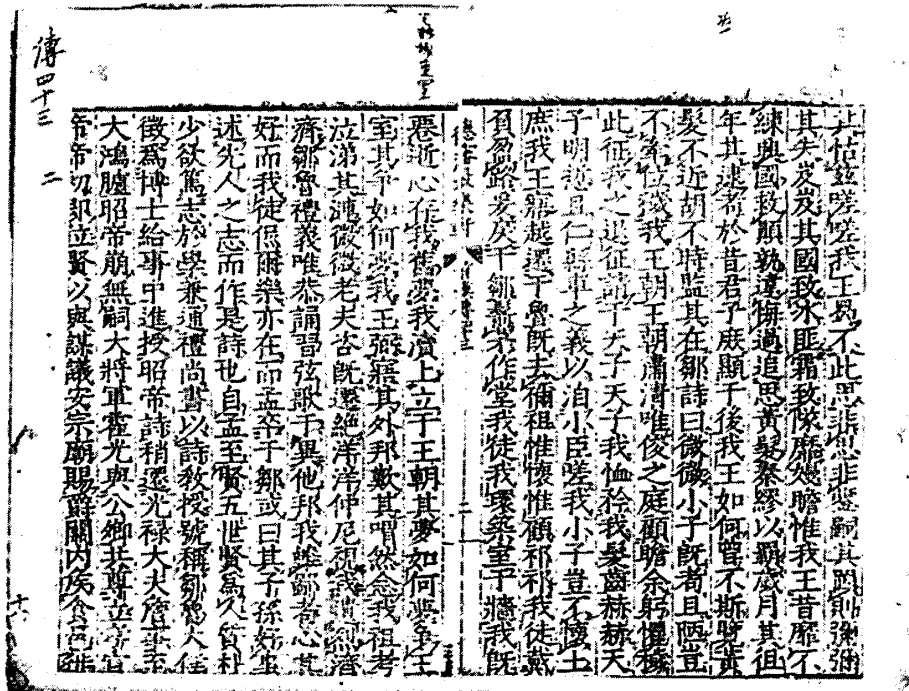 其怙茲嗟嗟我王曷不此思非思非鑒嗣其罔則彌彌
其失岌岌其國致冰匪霜致隊靡嫚瞻惟我王昔靡不
練興國救顛孰違悔過追思黃髮秦繆以霸歲月其徂
年其逮耇於昔君子庶顯于後我王如何曾不斯覽黃
髮不近胡不時監其在鄒詩曰微微小子既耇且陋豈
不牽位穢我王朝王朝肅清唯俊之庭顧瞻余躬懼穢
此征我之退征請于天子天子我恤矜我髮齒赫赫天
子明悊且仁縣車之義以洎小臣嗟我小子豈不懷土
庶我王寤越遷于魯既去禰祖惟懷惟顧祁祁我徒戴
負盈路爰戾于鄒鬋茅作堂我徒我環築室于牆我既
䙴逝心存我舊夢我瀆上立于王朝其夢如何夢爭王
室其爭如何夢我王弼寤其外邦歎其喟然念我祖考
泣涕其漣微微老夫咨既遷絕洋洋仲尼視我遺烈濟
濟鄒魯禮義唯恭誦習弦歌于異他邦我雖鄙耇心其
好而我徒侃爾樂亦在而孟卒于鄒或曰其子孫好事
述先人之志而作是詩也自孟至賢五世賢為人質朴
少欲篤志於學兼通禮尚書以詩教授號稱鄒魯大儒
徵為博士給事中進授昭帝詩稍遷光祿大夫詹事至
大鴻臚昭帝崩無嗣大將軍霍光與公卿共尊立孝宣
帝帝初即位賢以與謀議安宗廟賜爵關內侯食邑徙
傳四十三
二